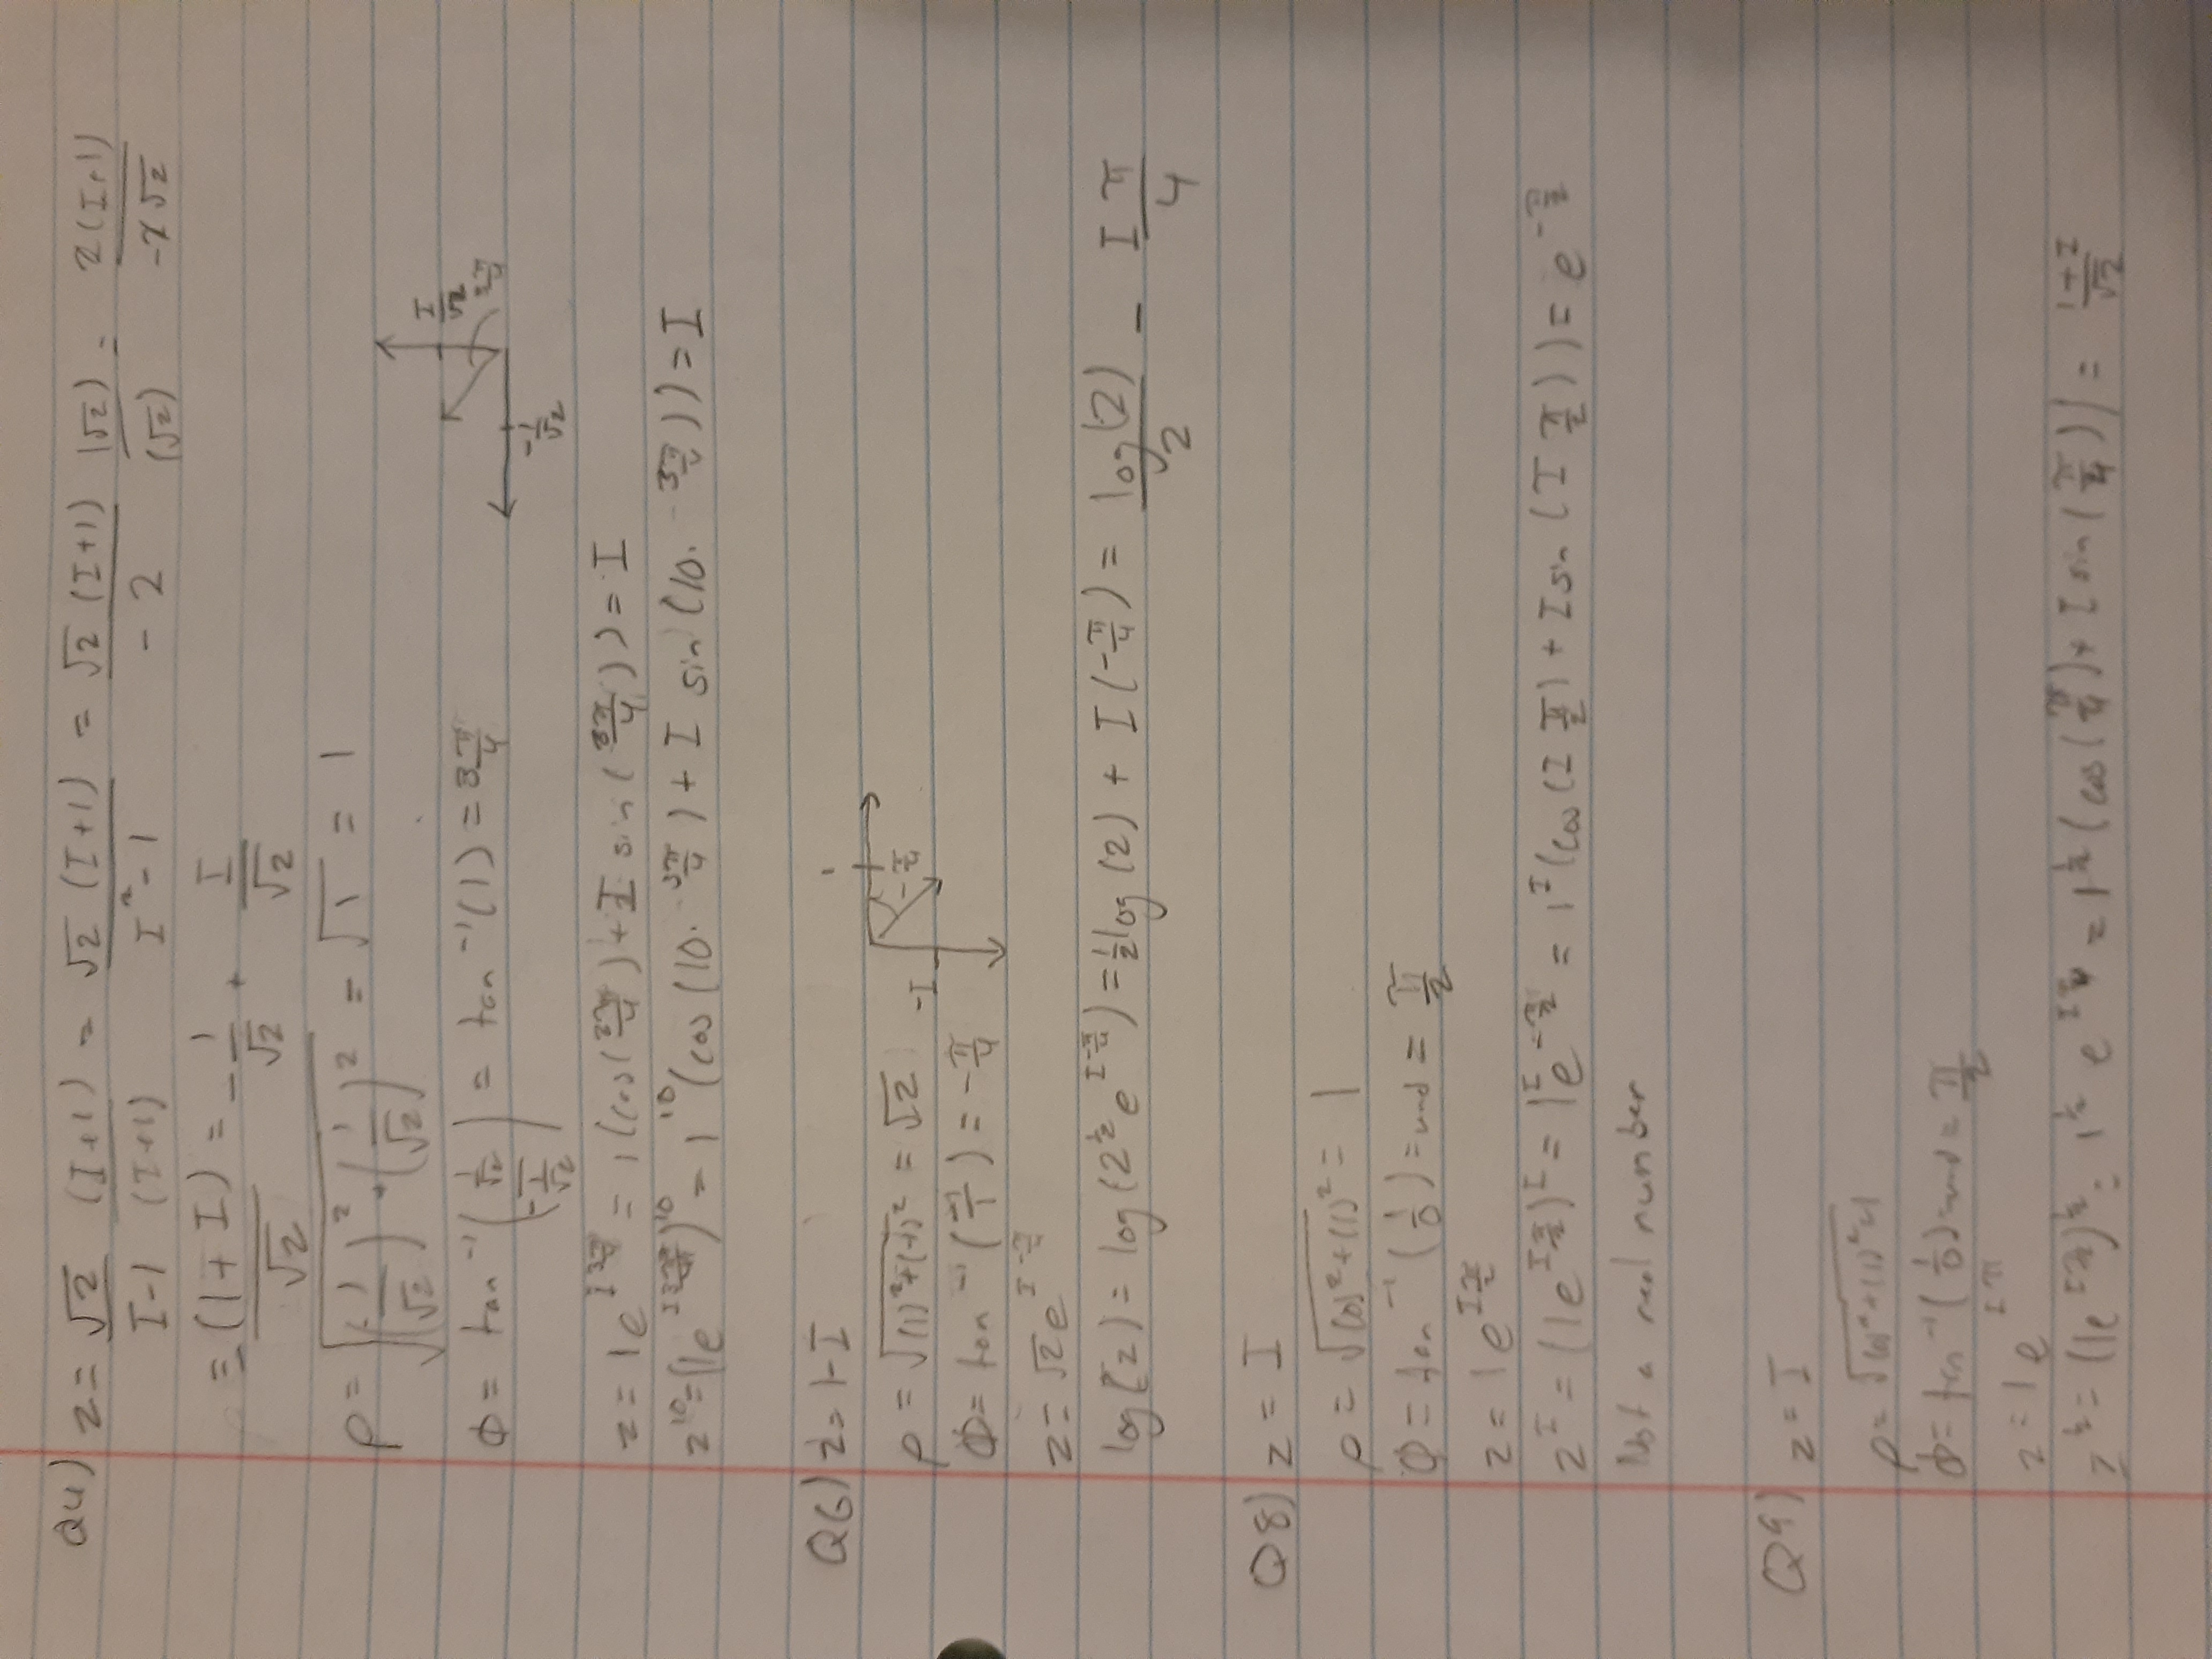 Q4) z = √2/(I-1) (I+1)/(I+1) = √2 (I+1)/(I²-1) = √2 (I+1)/-2 (√2)/(√2) = 2(I+1)/-2√2
= (1+I)/√2 = -1/√2 + I/√2
ρ = √((-1/√2)² + (1/√2)²) = √1 = 1
I/√2
φ = tan⁻¹((1/√2)/(-1/√2)) = tan⁻¹(1) = 3π/4
-1/√2
z = 1e^(I 3π/4) = 1(cos(3π/4) + I sin(3π/4)) = I
z¹⁰ = (1e^(I 3π/4))¹⁰ = 1¹⁰(cos(10· 3π/4) + I sin(10· 3π/4)) = I
Q6) z = 1-I
1
ρ = √((1)²+(-1)²) = √2
-I
-π/4
φ = tan⁻¹(-1/1) = -π/4
z = √2e^(I -π/4)
log(z) = log(2^½ e^(I -π/4)) = ½log(2) + I(-π/4) = log(2)/2 - Iπ/4
Q8) z = I
ρ = √((0)²+(1)²) = 1
φ = tan⁻¹(1/0) = und = π/2
z = 1e^(I π/2)
z^I = (1e^(I π/2))^I = 1^I e^(-π/2) = 1^I(cos(I π/2) + I sin(I π/2)) = e^(-π/2)
Not a real number
Q9) z = I
ρ = √((0)²+(1)²) = 1
φ = tan⁻¹(1/0) = und = π/2
z = 1e^(Iπ)
z^½ = (1e^(I π/2))^½ = 1^½ e^(I π/4) = 1^½(cos(π/4) + I sin(π/4)) = (1+I)/√2